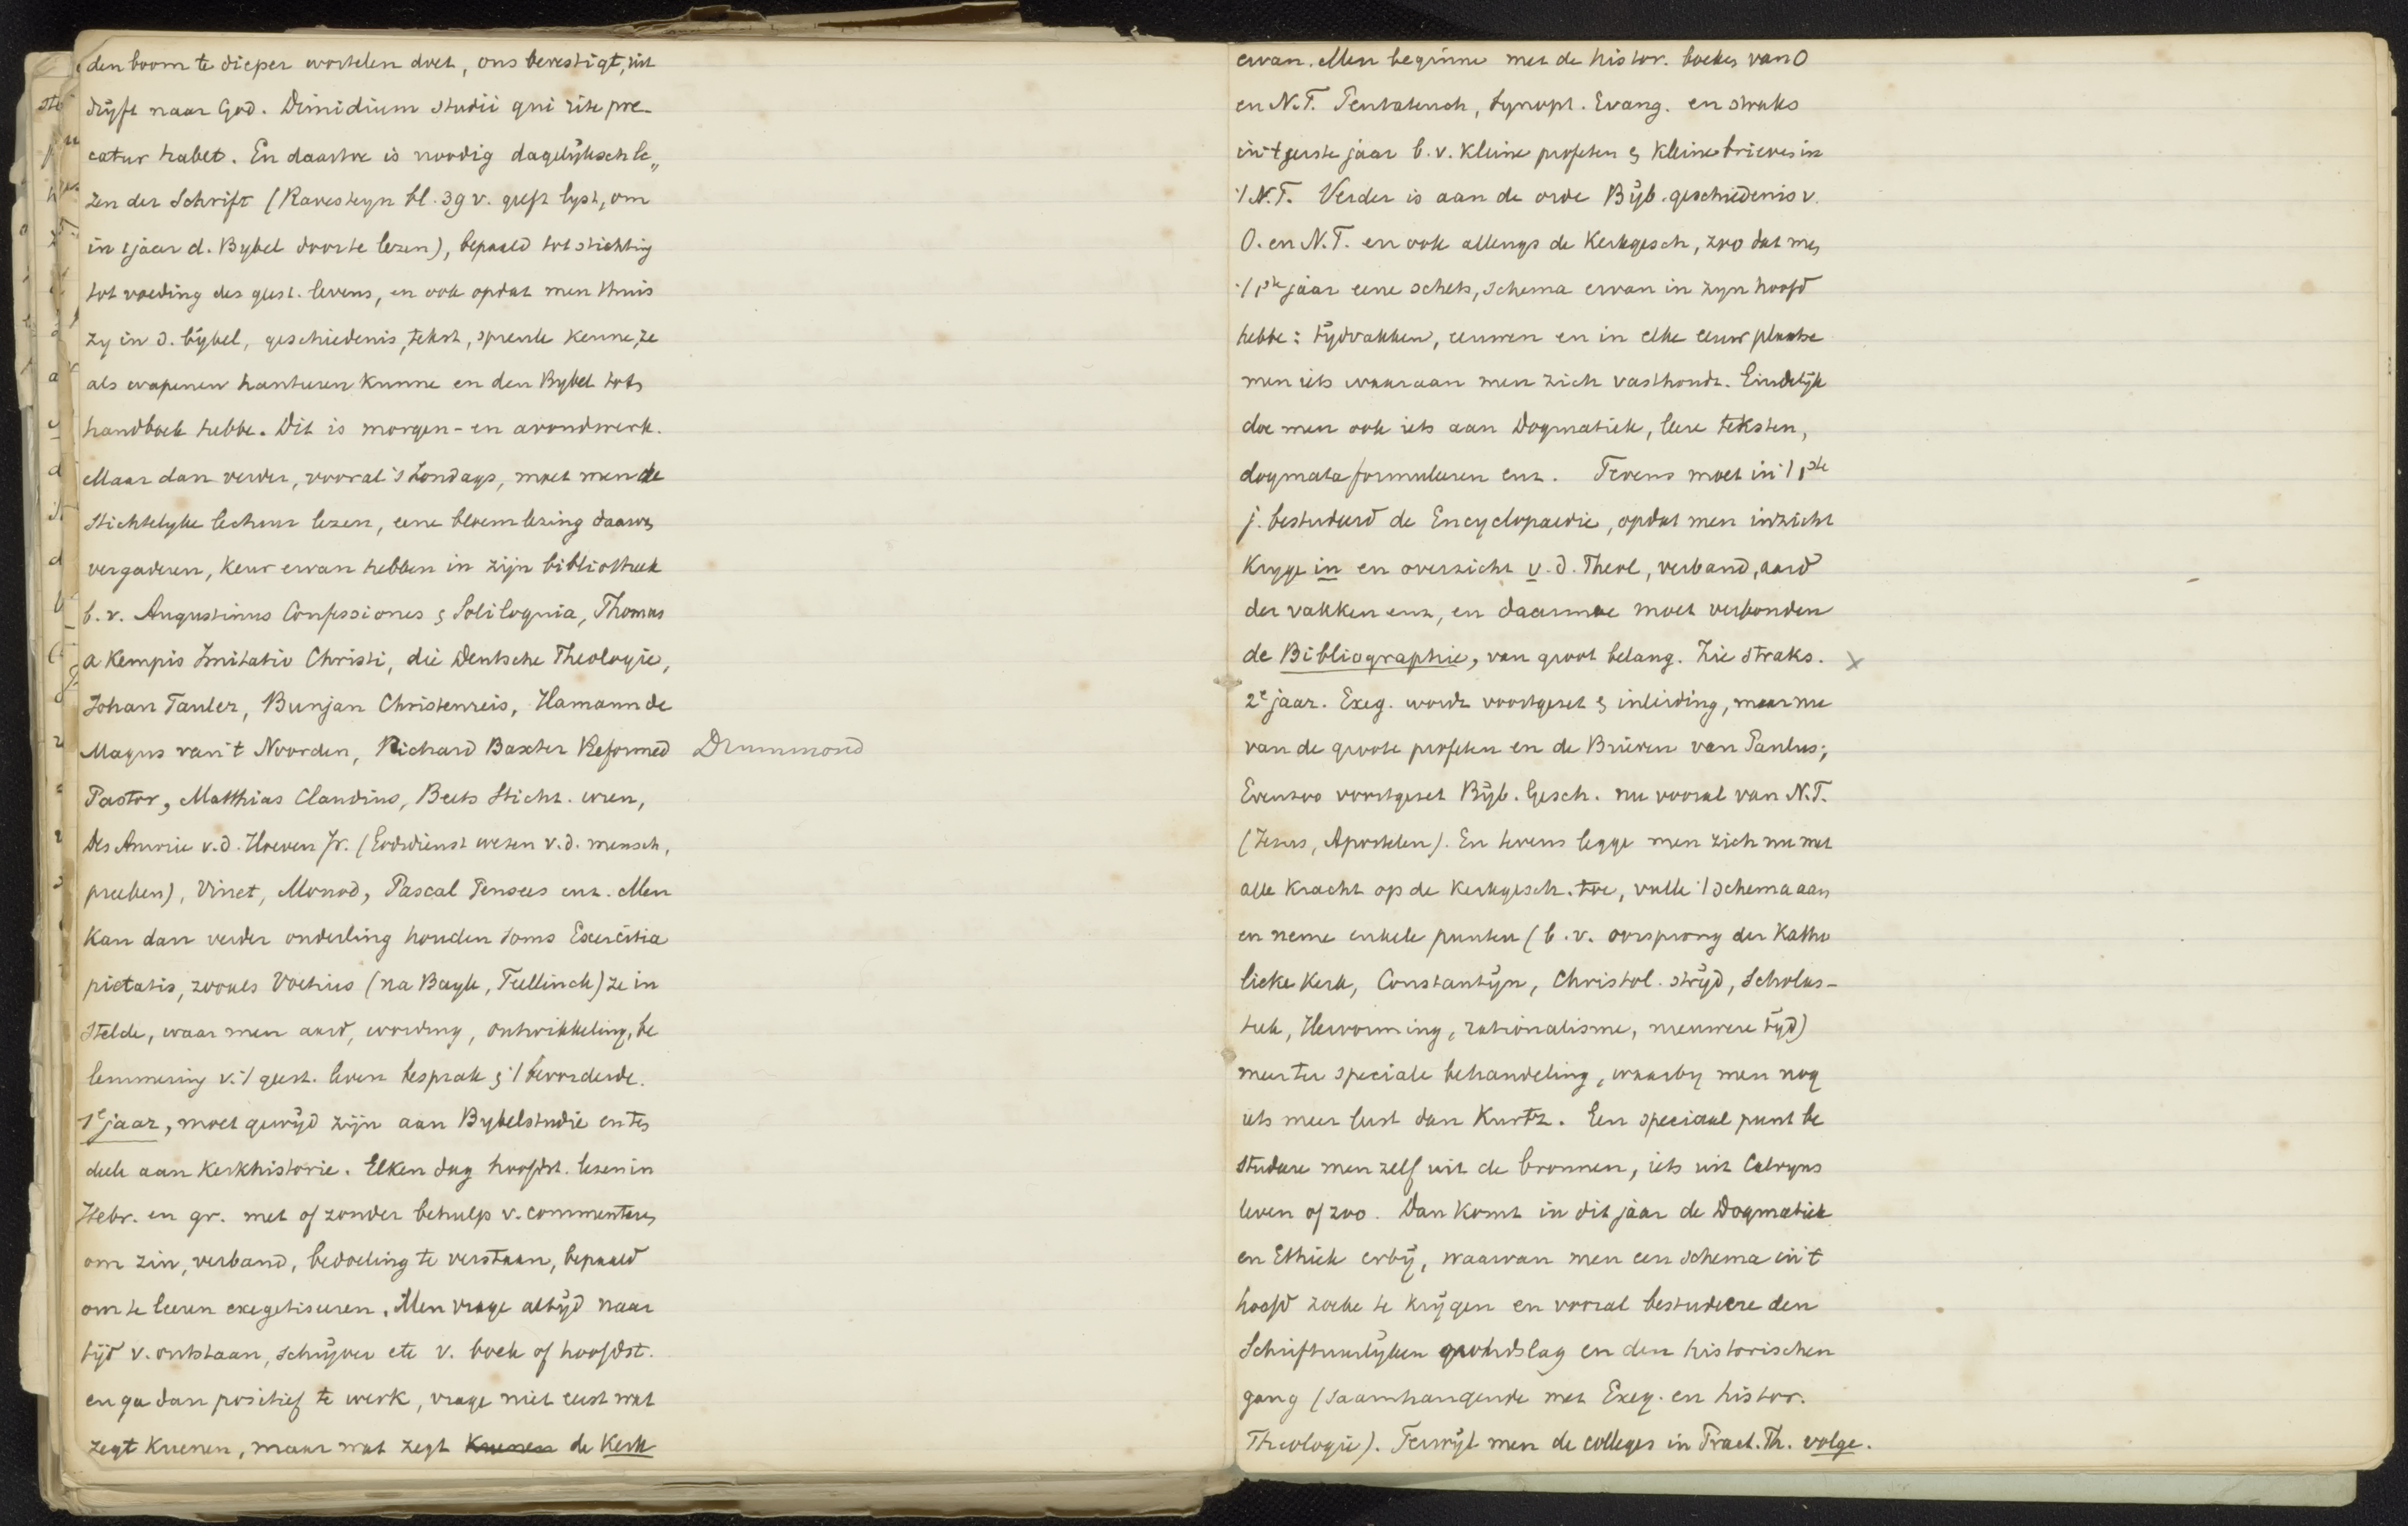 den boom te dieper wortelen doet, ons bevestigt, uit
drijft naar God. Dimidium studii qui rite pre-
catur habet. En daartoe is noodig dagelijksch le„
zen der Schrift (Ravesteyn bl. 39 v. geeft lyst, om
in 1 jaar d. Bybel door te lezen), bepaald tot stichting
tot voeding des geest. levens, en ook opdat men thuis
zy in d. bijbel, geschiedenis, tekst, spreuk kenne, ze
als wapenen hanteeren kunne en den Bybel tot
handboek hebbe. Dit is morgen- en avondwerk.
Maar dan verder, vooral 's Zondags, moet men de
stichtelyke lectuur lezen, eene bloemlezing daarvan
vergaderen, keur ervan hebben in zijn bibliotheek
b.v. Augustinus Confessiones & Soliloquia, Thomas
a Kempis Imitatio Christi, die Deutsche Theologie,
Johan Tauler, Bunjan Christenreis, Hamann de
Magus van 't Noorden, Richard Baxter Reformed Drummond
Pastor, Matthias Claudius, Beets Sticht. uren,
Des Amorie v.d. Hoeven Jr. (Godsdienst wezen v.d. mensch,
preeken), Vinet, Monod, Pascal Pensees enz. Men
kan dan verder onderling houden soms Exercitia
pietatis, zooals Voetius (na Bayle, Teellinck) ze in
stelde, waar men aard, wording, ontwikkeling, be
lemmering v. 't geest. leven besprak & 't bevorderde.
1e jaar, moet gewijd zijn aan Bybelstudie en ten
deele aan Kerkhistorie. Elken dag hoofdst. lezen in
Hebr. en gr. met of zonder behulp v. commentaren
om zin, verband, bedoeling te verstaan, bepaald
om te leeren exegetiseeren. Men vrage altijd naar
tijd v. ontstaan, schrijver etc v. boek of hoofdst.
en ga dan positief te werk, vrage niet eerst wat
zegt Kuenen, maar wat zegt Kuenen de Kerk
ervan. Men beginne met de histor. boeken van O
en N.T. Pentateuch, Synopt. Evang. en straks
in 't eerste jaar b.v. kleine profeten & kleine brieven in
't N.T. Verder is aan de orde Bijb. geschiedenis v.
O. en N.T. en ook allengs de Kerkgesch, zoo dat men
't 1ste jaar eene schets, schema ervan in zyn hoofd
hebbe: tijdvakken, eeuwen en in elke eeuw plaatse
men iets waaraan men zich vasthoudt. Eindelijk
doe men ook iets aan Dogmatiek, leere teksten,
dogmata formuleeren enz. Tevens moet in 't 1ste
j. bestudeerd de Encyclopaedie, opdat men inzicht
kryge in en overzicht v. d. Theol, verband, aard
der vakken enz, en daarmee moet verbonden
de Bibliographie, van groot belang. Zie straks. x
2e jaar. Exeg. wordt voortgezet & inleiding, maar nu
van de groote profeten en de Brieven van Paulus;
Evenzoo voortgezet Bijb. Gesch. nu vooral van N.T.
(Jezus, Apostelen). En tevens legge men zich nu met
alle kracht op de Kerkgesch. toe, vulle 't schema aan
en neme enkele punten (b.v. oorsprong der Katho
lieke Kerk, Constantijn, Christol. strijd, Scholas-
tiek, Hervorming, rationalisme, nieuwere tijd)
meer ter speciale behandeling, waarby men nog
iets meer leest dan Kurtz. Een speciaal punt be
studeere men zelf uit de bronnen, iets uit Calvyns
leven of zoo. Dan komt in dit jaar de Dogmatiek
en Ethiek erbij, waarvan men een schema in 't
hoofd zoeke te krijgen en vooral bestudeere den
Schriftuurlijken grondslag en den historischen
gang (saamhangende met Exeg. en histor.
Theologie). Terwijl men de colleges in Pract. Th. volge.